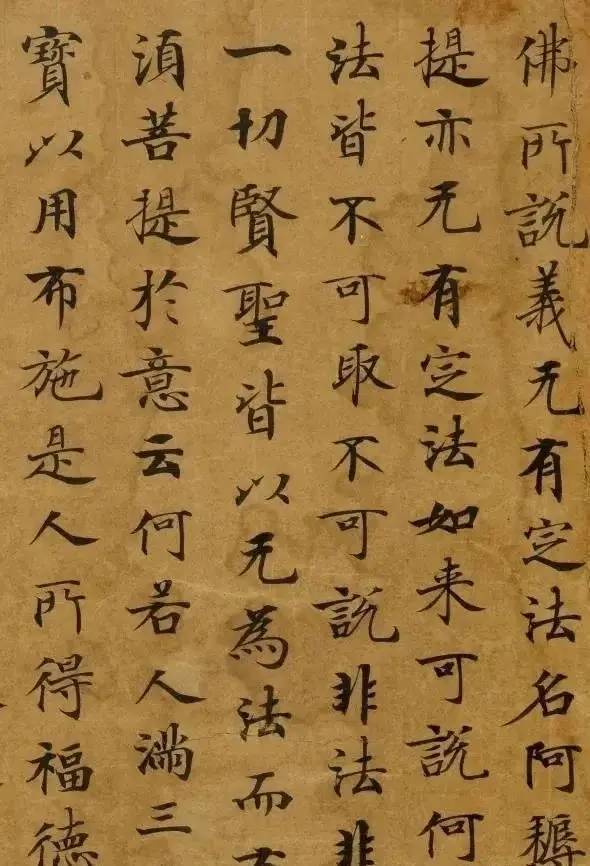 佛所說義无有定法名阿耨
提亦无有定法如来可說何
法皆不可取不可說非法非
一切賢聖皆以无為法而有
須菩提於意云何若人滿三
寶以用布施是人所得福德